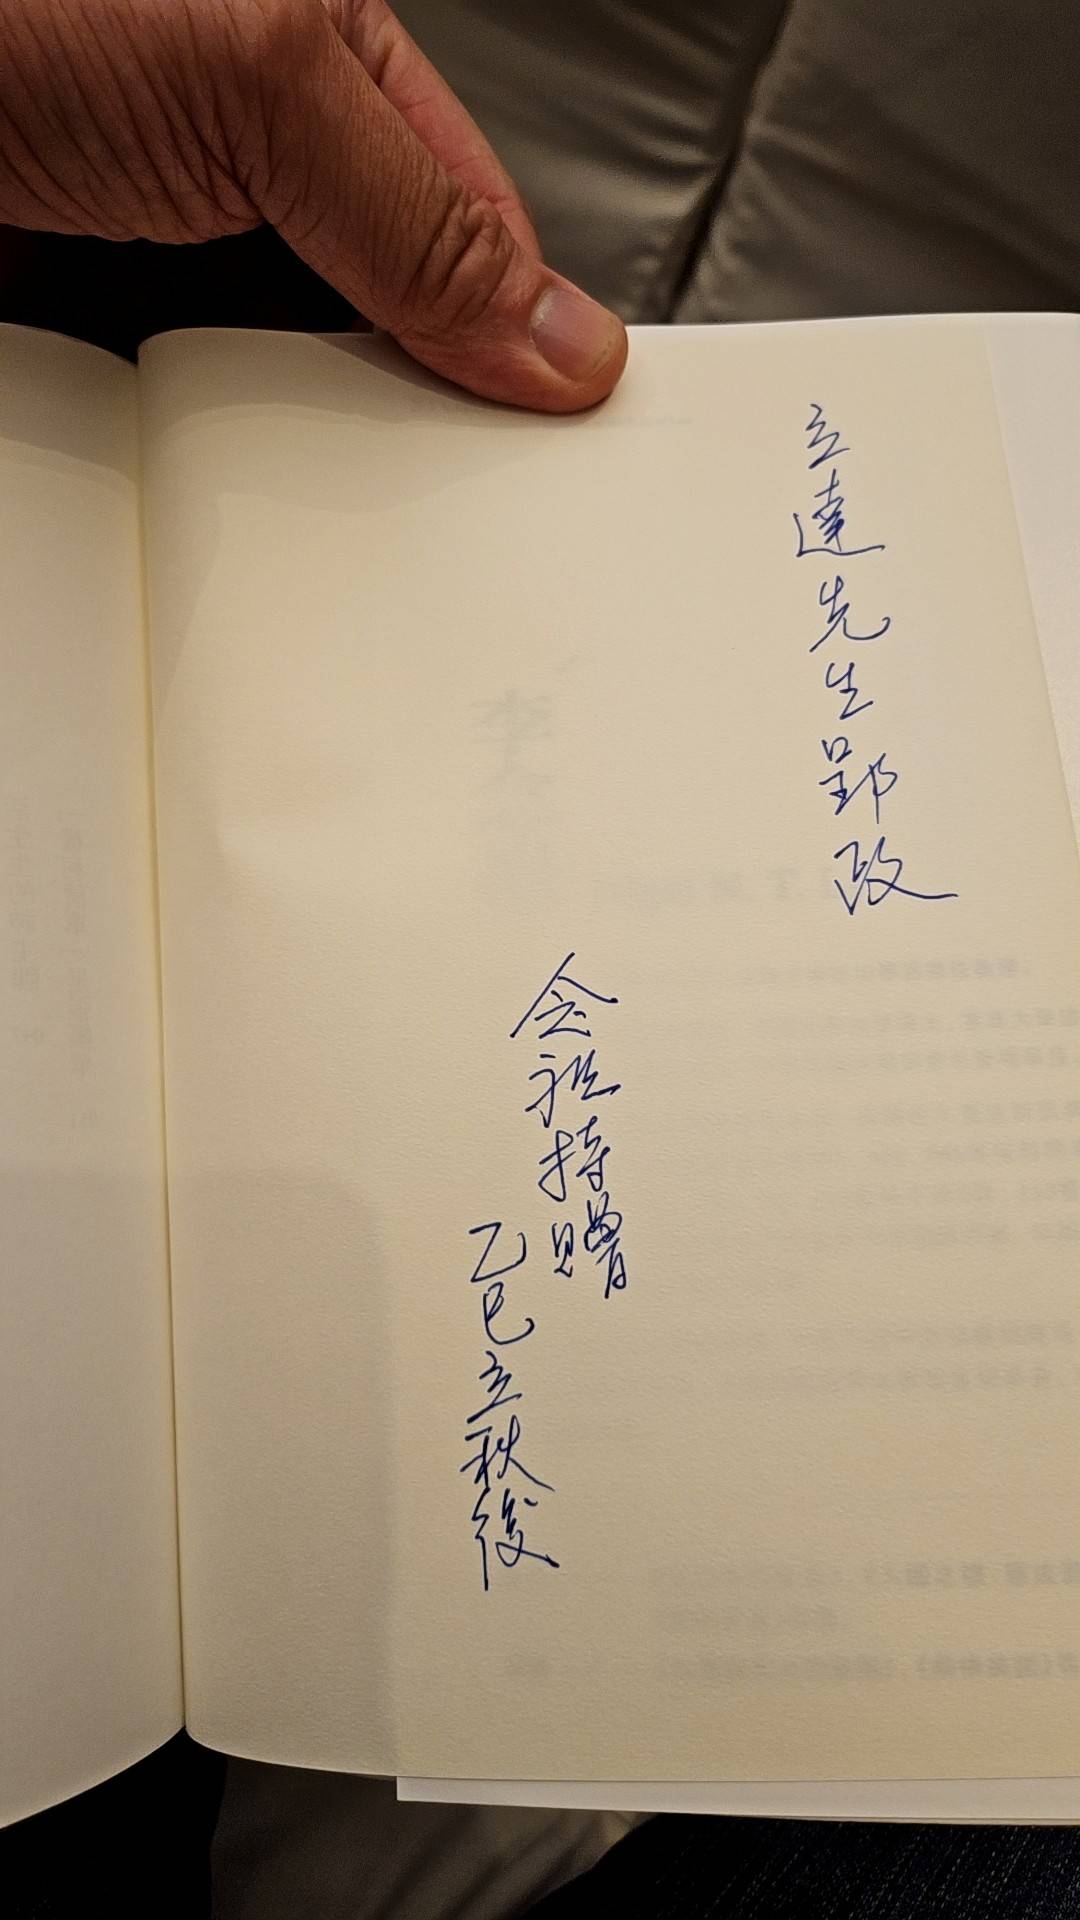 立達先生郢政
念祖持贈
乙巳立秋後